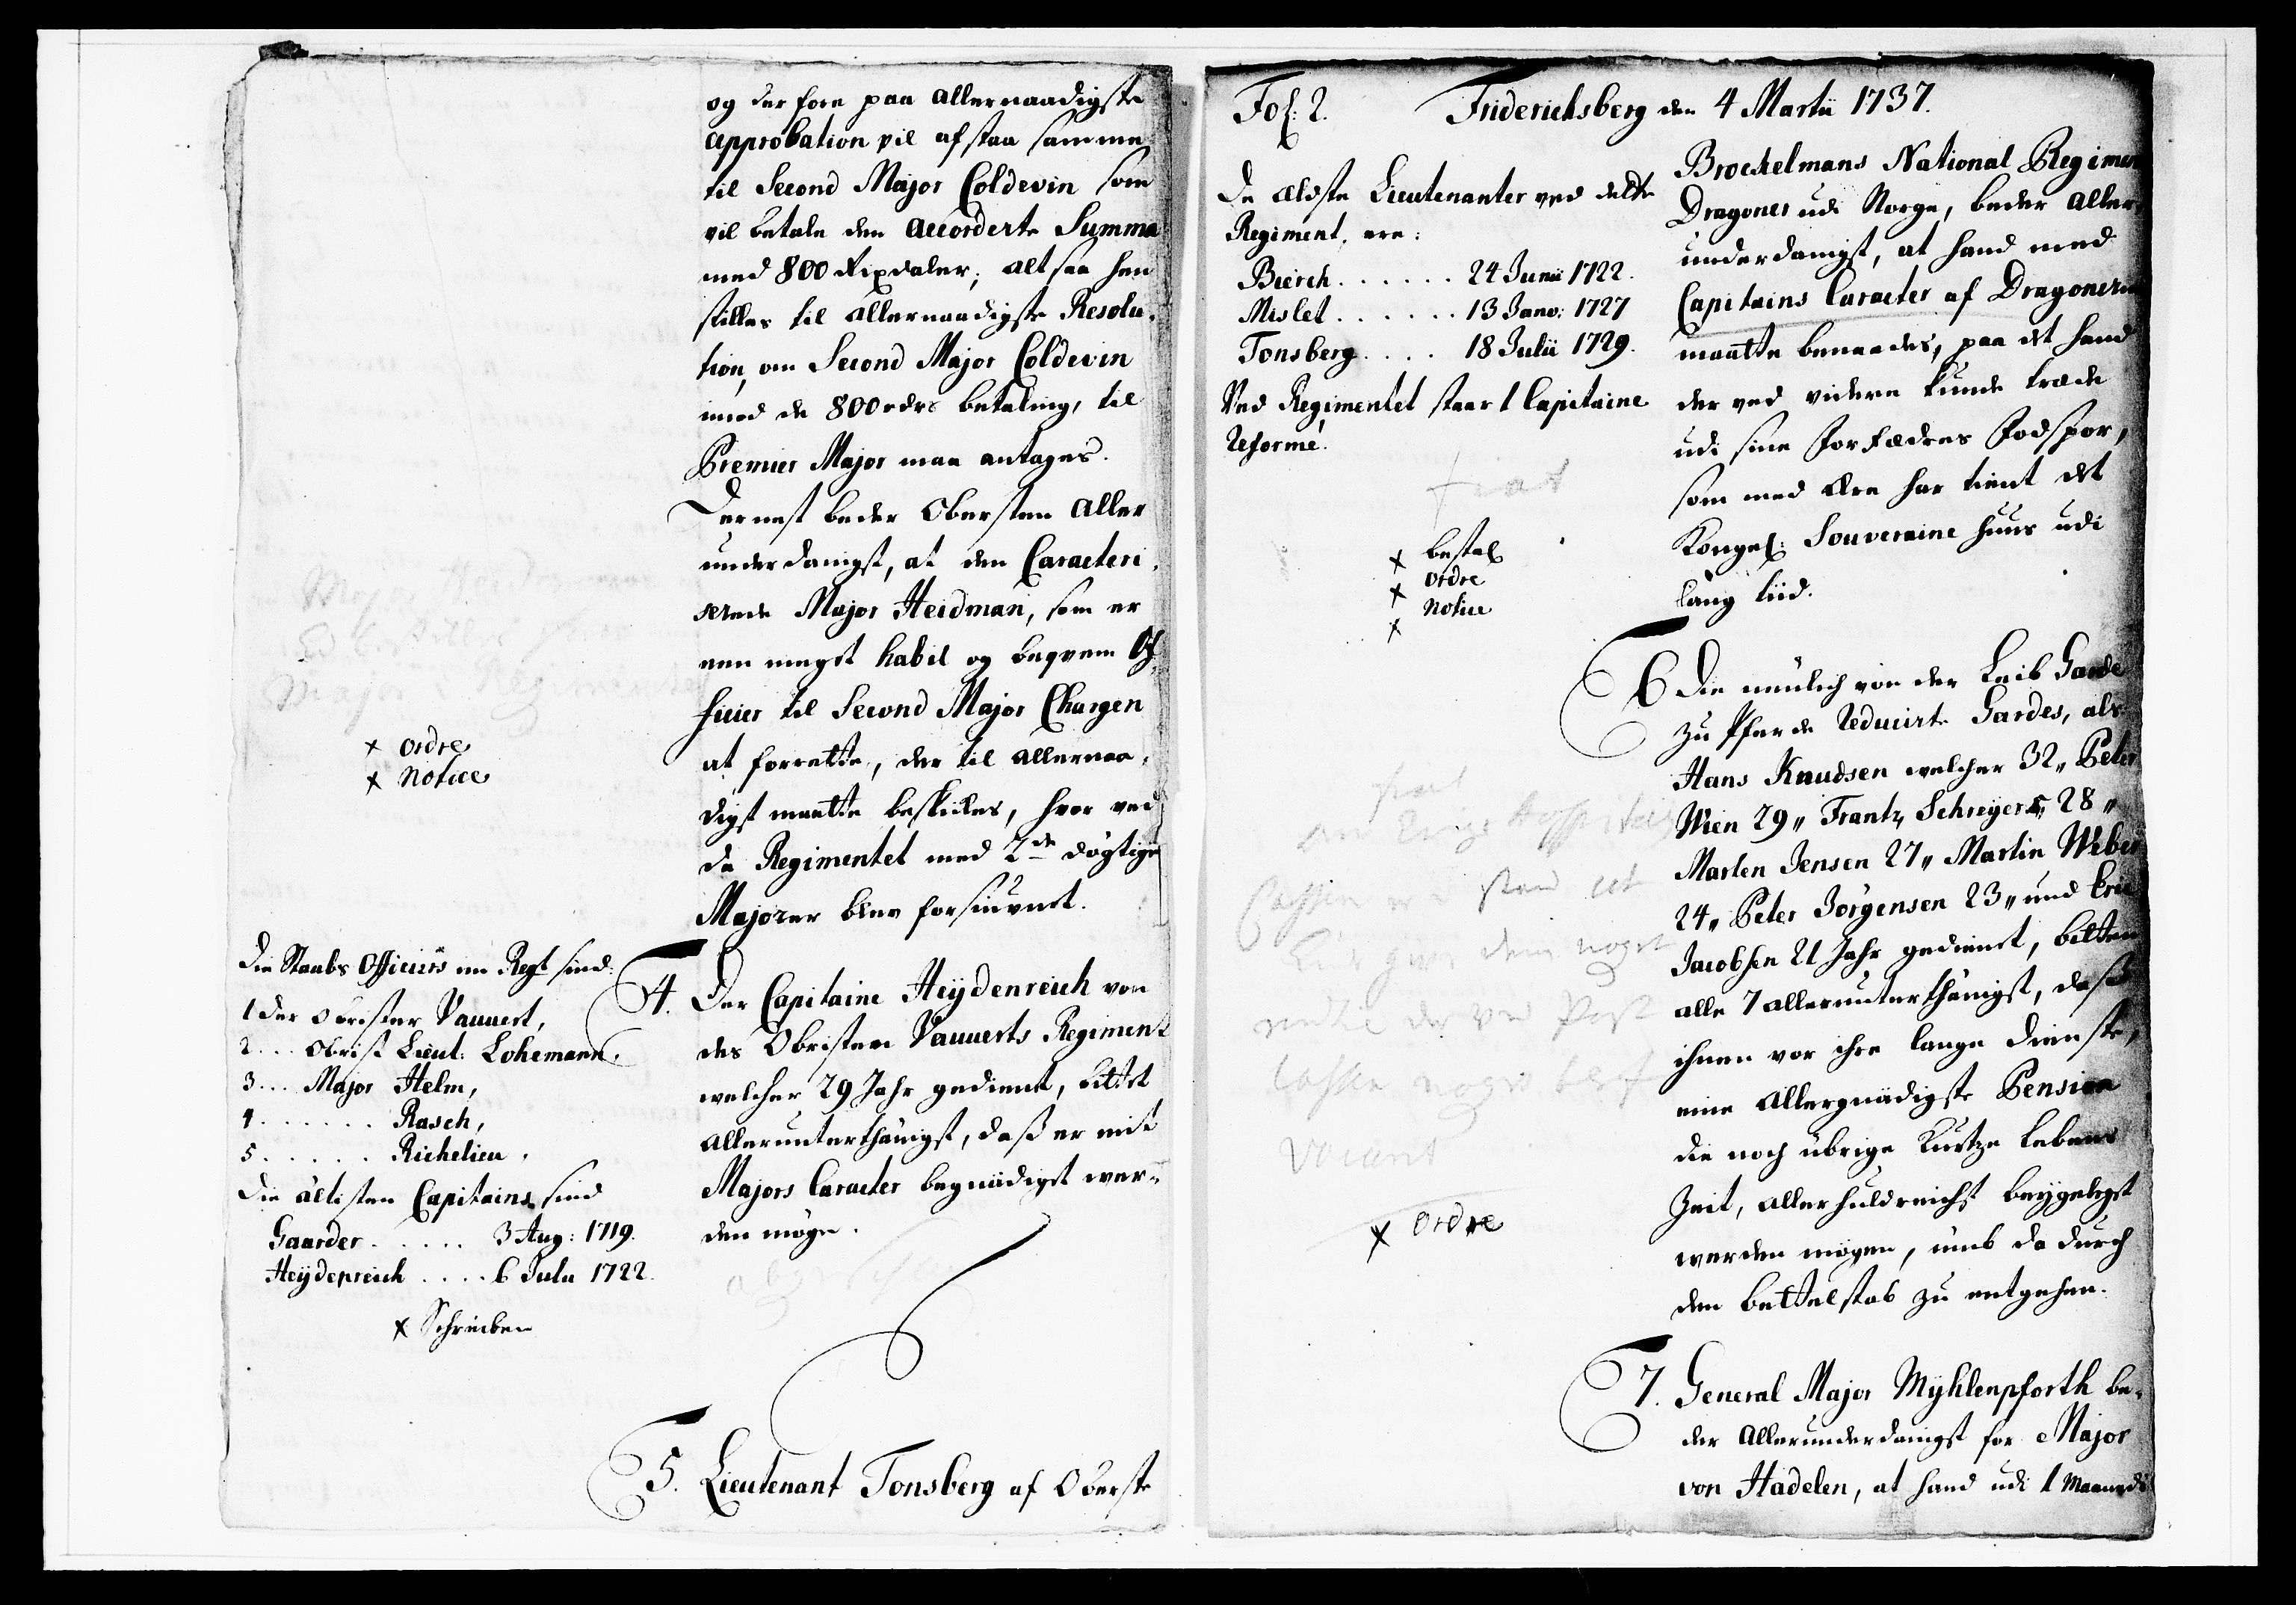 og derfore paa allernaadigste
approbation vil afstaa samme
til Second Major Coldevin som
vil betale den accorderte Summa
med 800 Rixdaler; altsaa hen
stilles til allernaadigste Resolu-
tion, om Second Major Coldevin
imod de 800 rdrs betaling, til
Premier Major maa antages.
Dernest beder Obersten Aller
underdanigst, at den Caracteri-
serede Major Heidman, som er
een meget habil og beqvem Of-
ficier til Second Major Chargen
at forrette, der til allernaa-
digst maatte beskikkes, hvor ved
da Regimentet med 2de døgtige
Majorer blev forsiunet.
Major
Major Regimentet
x ordre
x Notice
Die Staabs Officiers im Regt sind:
1 der Obrister Vauuert,
2 ... Obrist Lieut: Lohemann,
3 ... Major Helm,
4 ...... Rasch,
5 ..... Richelieu.
Die ältisten Capitains sind
Gaarder ..... 3 Aug: 1719.
Heÿdenreich .... 6 Julii 1722.
x Schreiben
4. Der Capitaine Heÿdenreich von
des Obristen Vauuerts Regiment
welcher 29 Jahr gedient, bittet
allerunterthänigst, daß er mit
Majors Caracter begnädiget wer-
den möge.
5. Lieutenant Tonsberg af Oberste
Fol: 2. Friderichsberg den 4 Martii 1737.
De ældste Lieutenanter ved dette
Regiment, ere:
Bierch ...... 24 Junii 1722.
Mislet ...... 13 Janv: 1727
Tonsberg .... 18 Julii 1729.
Ved Regimentet staar 1 Capitaine
Reformé.
fiat
x bestal
x ordre
x Notice
Brockelmans National Regimen
Dragoner udi Norge, beder aller
underdanigst, at hand med
Capitains Caracter af Dragonerne
maatte benaades, paa det hand
der ved videre kunde træde
udi sine Forfædres Fodspor,
som med ære har tient det
Kongel: Souveraine Huus udi
lang tiid.
6 Die neulich von der Leib Garde
zu Pferde reducirte Gardes, als
Hans Knudsen welcher 32,, Peter
Wien 29,, Frantz Schreÿer 28,,
Marten Jensen 27,, Martin Weber
24,, Peter Jörgensen 23,, und Eric
Jacobsen 21 Jahr gedienet, bitten
alle 7 allerunterthänigst, daß
ihnen vor ihre lange Dienste,
eine allergnädigste Pension
die noch übrige Kurtze lebens
Zeit, allerhuldreichst beÿgelegt
werden mögen, umb da durch
den bettelstab zu entgehen.
fiat
vacant
x Ordre
7. General Major Mÿhlenpforth be-
der allerunderdanigst for Major
von Hadelen, at hand udi 1 Maaneds